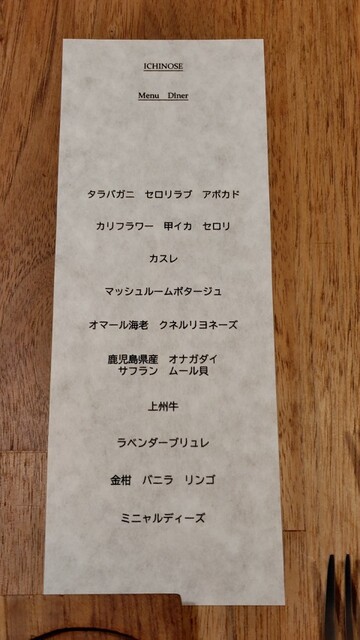 ICHINOSE
Menu Diner
タラバガニ セロリラブ アボカド
カリフラワー 甲イカ セロリ
カスレ
マッシュルームポタージュ
オマール海老 クネルリヨネーズ
鹿児島県産 オナガダイ
サフラン ムール貝
上州牛
ラベンダーブリュレ
金柑 バニラ リンゴ
ミニャルディーズ